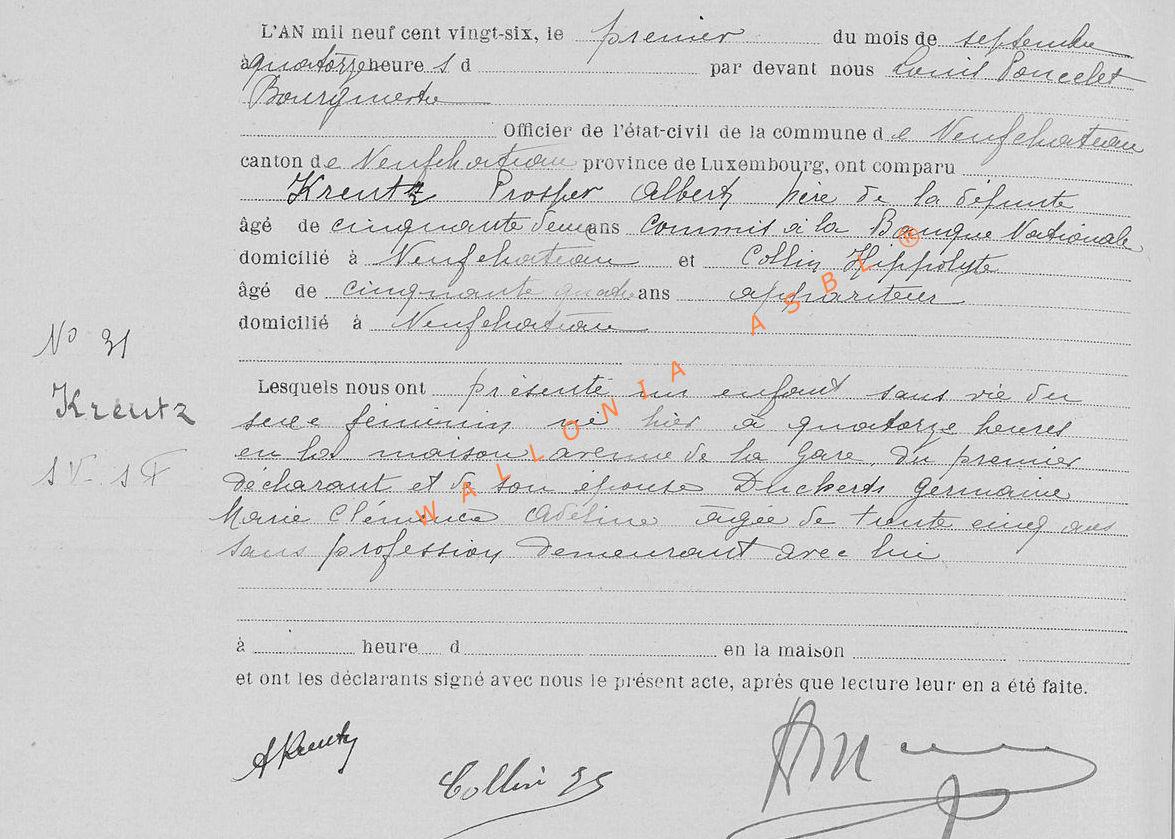 L'AN mil neuf cent vingt-six, le premier du mois de septembre
à quatorze heure s d par devant nous Louis Poncelet
Bourgmestre
Officier de l'état-civil de la commune d e Neufchateau
canton de Neufchateau province de Luxembourg, ont comparu
Kreutz Prosper Albert père de la défunte
âgé de cinquante deux ans commis à la Banque Nationale
domicilié à Neufchateau et Collin Hippolyte
âgé de cinquante quatre ans appariteur
domicilié à Neufchateau
No 31
Kreutz
S V - S F
Lesquels nous ont présenté un enfant sans vie du
sexe féminin né hier à quatorze heures
en la maison avenue de la Gare, du premier
déclarant et de son épouse Duckerts Germaine
Marie Clémence Adeline agée de trente cinq ans
sans profession demeurant avec lui
à heure d en la maison
et ont les déclarants signé avec nous le présent acte, après que lecture leur en a été faite.
A Kreutz
Collin
WALLONIA ASBL ®